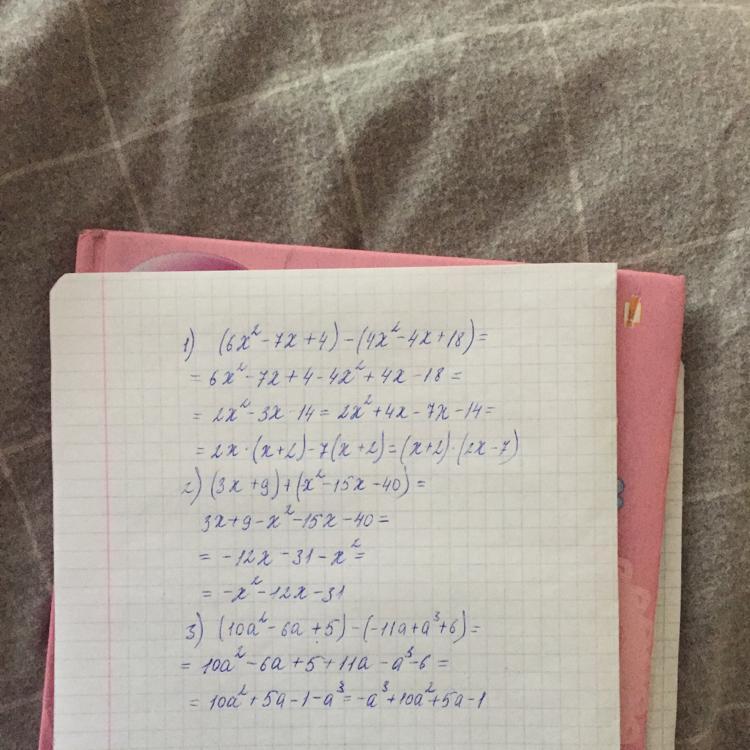 1) (6x²-7x+4)-(4x²-4x+18)=
= 6x²-7x+4-4x²+4x-18=
= 2x²-3x-14 = 2x²+4x-7x-14=
= 2x·(x+2)-7(x+2)=(x+2)·(2x-7)
2) (3x+9)+(x²-15x-40)=
3x+9-x²-15x-40=
= -12x-31-x²=
= -x²-12x-31
3) (10a²-6a+5)-(-11a+a³+6)=
= 10a²-6a+5+11a-a³-6=
= 10a²+5a-1-a³=-a³+10a²+5a-1